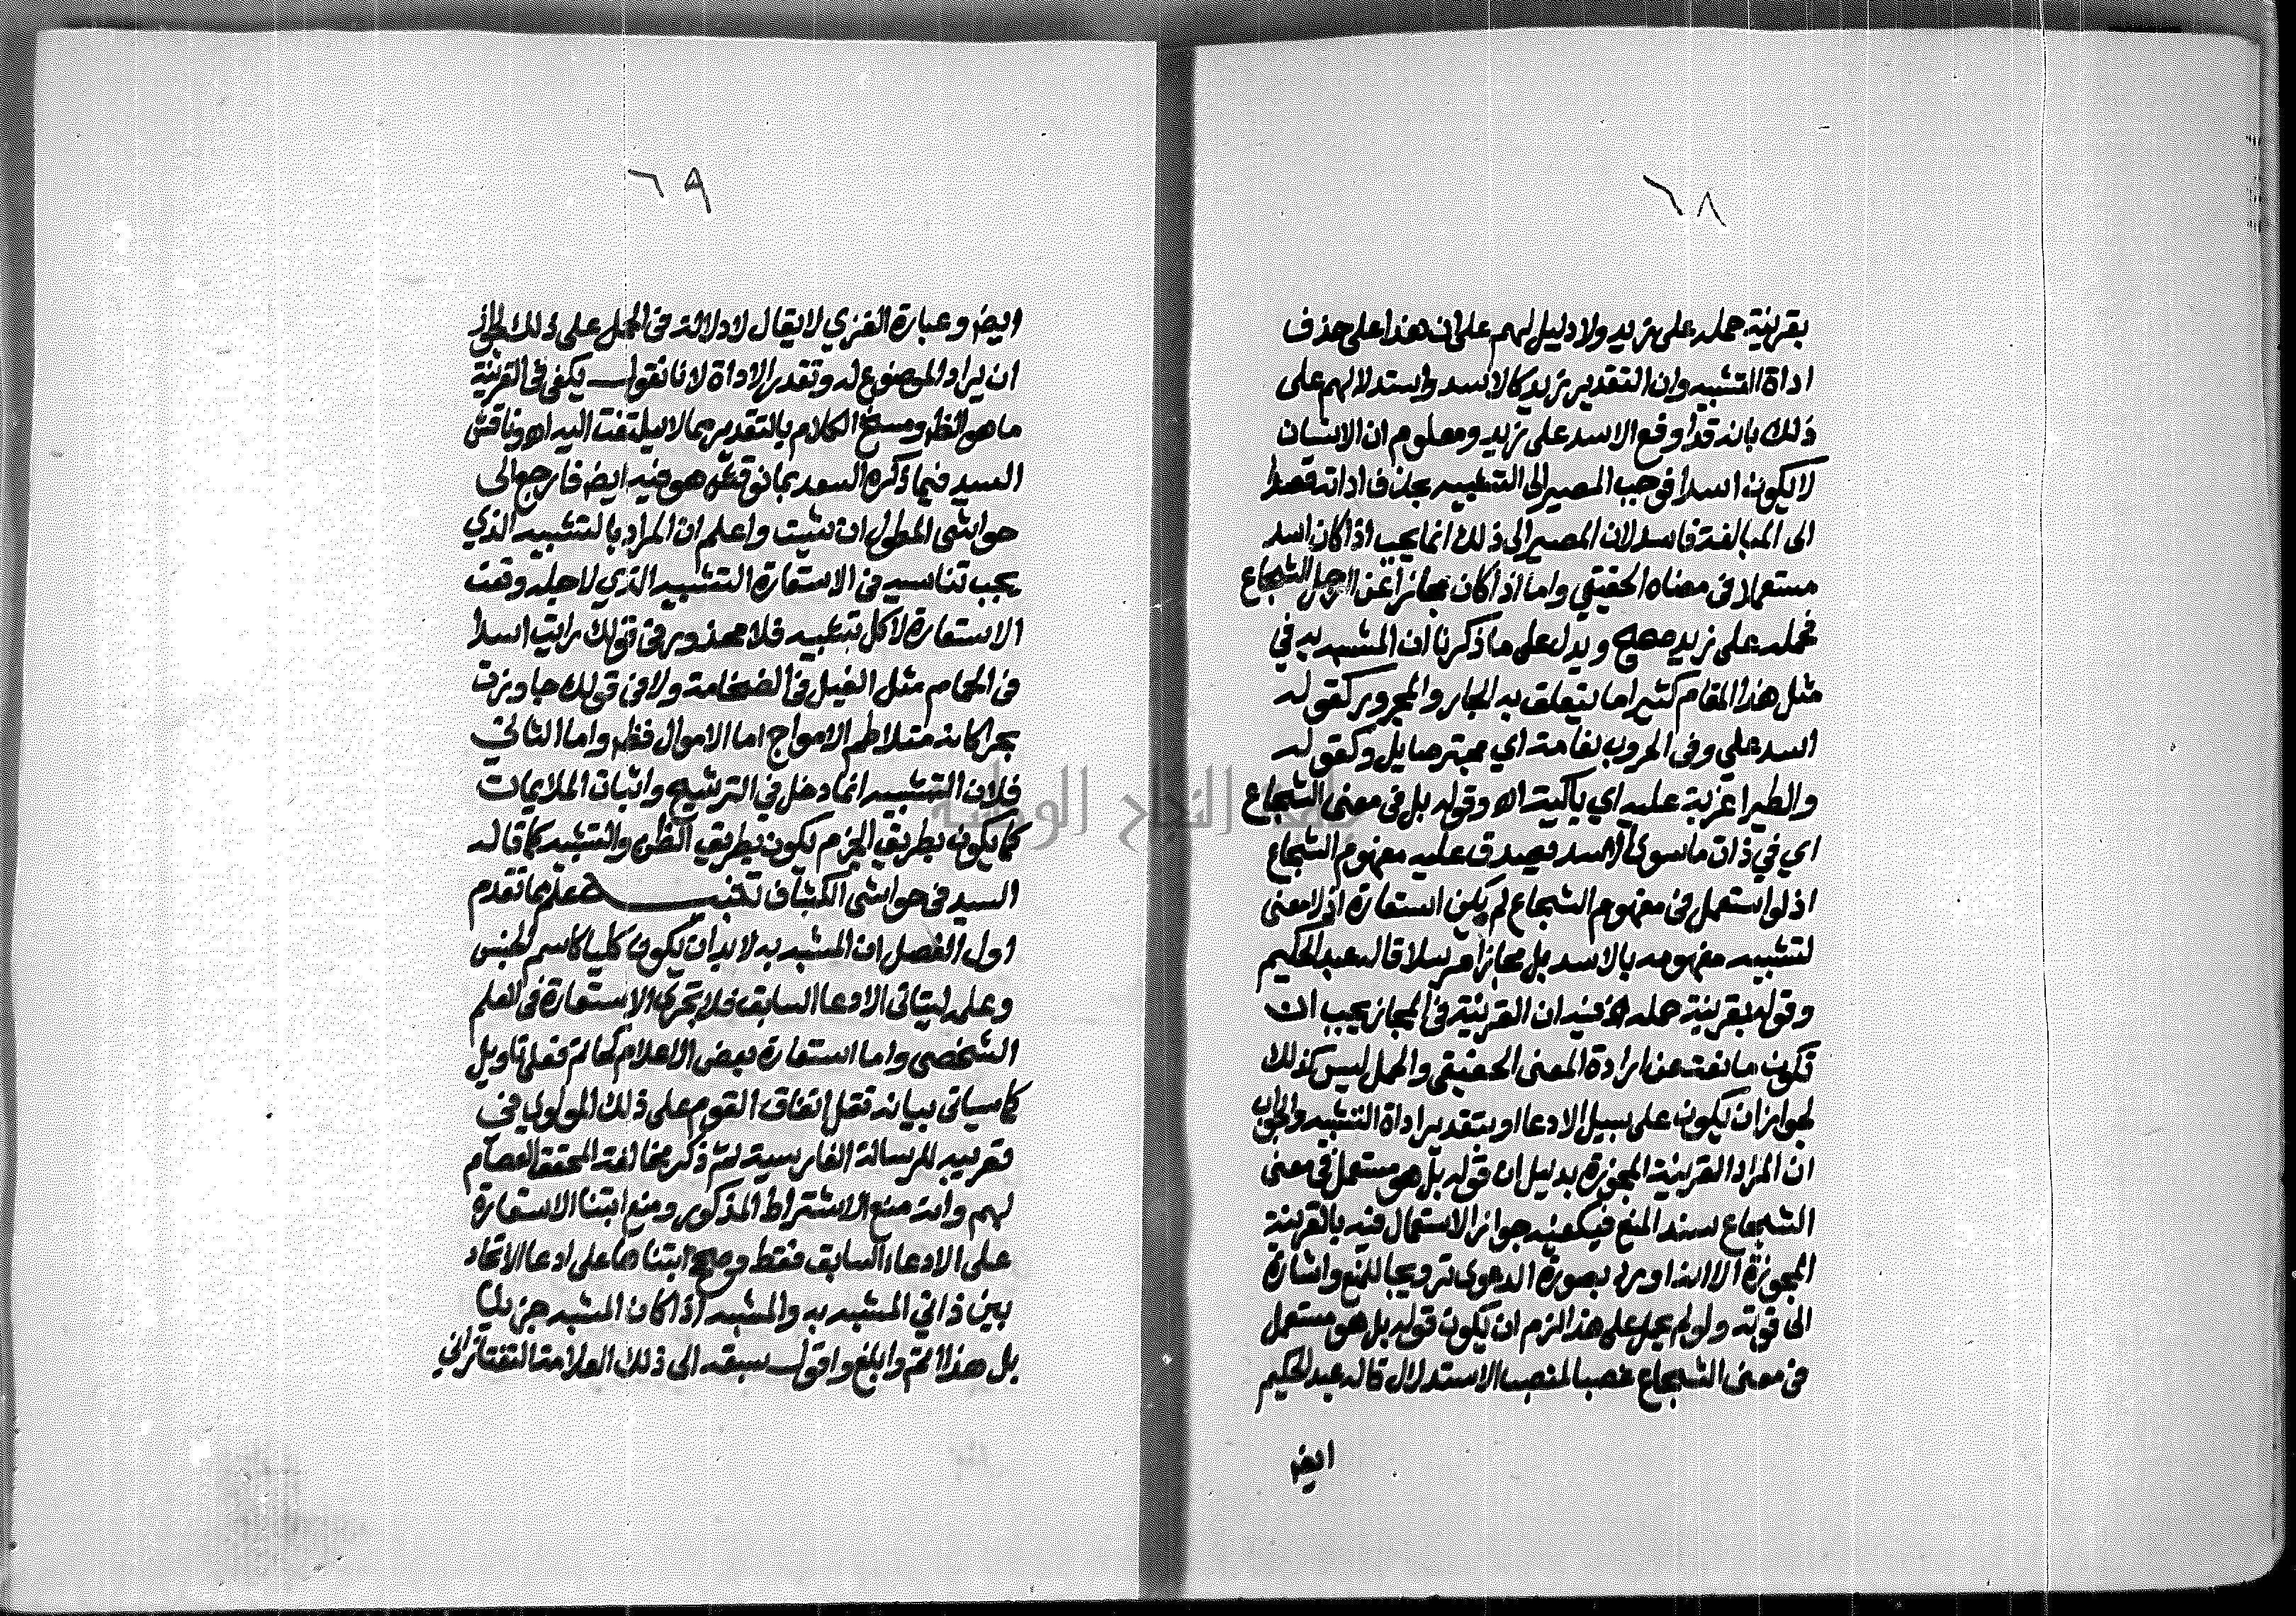 ٦٨
بقرينة حمله على زيد ولا دليل لهم على ان هذا على حذف
اداة التشبيه وان التقدير زيد كالاسد واستدلالهم على
ذلك بانه قد أوقع الاسد على زيد ومعلوم ان الانسان
لا يكون اسدا فوجب المصير الى التشبيه بحذف اداته قصدا
الى المبالغة فاسد لان المصير الى ذلك انما يجب اذا كان اسد
مستعملا في معناه الحقيقي واما اذا كان مجازا عن الرجل الشجاع
فحمله على زيد صحيح ويدل على ما ذكرنا ان المشبه به في
مثل هذا المقام كثيرا ما يتعلق به الجار والمجرور كقوله
اسد علي وفي الحروب نعامة اي مجتر صايل وكقوله
والطير اغربة عليه اي باكية اه وقوله بل في معنى الشجاع
اي في ذات ما سوى الاسد فيصدق عليه مفهوم الشجاع
اذ لو استعمل في مفهوم الشجاع لم يكن استعارة اذ لا معنى
لتشبيه مفهومه بالاسد بل مجازا مرسلا قاله عبد الحكيم
وقوله بقرينة حمله الخ فيه ان القرينة في المجاز يجب ان
تكون مانعة عن ارادة المعنى الحقيقي والحمل ليس كذلك
لجواز ان يكون على سبيل الادعا او بتقدير اداة التشبيه والجواب
ان المراد القرينة المجوزة بدليل ان قوله بل هو مستعمل في معنى
الشجاع سند المنع فيكفيه جواز الاستعمال فيه بالقرينة
المجوزة الا انه اورد بصورة الدعوى ترويجا للمنع واشارة
الى قوته ولو لم يحمل على هذا لزم ان يكون قوله بل هو مستعمل
في معنى الشجاع غصبا لمنصب الاستدلال قاله عبد الحكيم
ايض
٦٩
ايض وعبارة الفنري لا يقال لا دلالة في الحمل على ذلك لجواز
ان يراد الموضوع له وتقدير الاداة لانا نقول يكفي في القرينة
ما هو الظ ومسخ الكلام بالتقدير مما لا يلتفت اليه اه وناقش
السيد فيما ذكره السعد بما نوقش هو فيه ايض فارجع الى
حواشي المطول ان شيت واعلم ان المراد بالتشبيه الذي
يجب تناسيه في الاستعارة التشبيه الذي لاجله وقعت
الاستعارة لا كل تشبيه فلا محذور في قولك رايت اسدا
في الحمام مثل الفيل في الضخامة ولا في قولك جاورت
بحرا كانه متلاطم الامواج اما الاموال فظ واما الثاني
فلان التشبيه انما دخل في الترشيح واثبات الملايمات
كما يكون بطريق الجزم يكون بطريق الظن والتشبيه كما قاله
السيد في حواشي الكشاف تنبيه علم مما تقدم
اول الفصل ان المشبه به لا بد ان يكون كليا كاسم الجنس
وعلمه ليتاتى الادعا السابق فلا تجري الاستعارة في العلم
الشخصي واما استعارة بعض الاعلام كحاتم فعلى تاويل
كما سياتي بيانه نقل اتفاق القوم على ذلك المولوي في
تعريبه للرسالة الفارسية ثم ذكر مخالفة المحقق العصام
لهم وانه منع الاشتراط المذكور ومنع ابتنا الاستعارة
على الادعاء السابق فقط وصحح ابتناها على ادعا الاتحاد
بين ذاتي المشبه به والمشبه اذا كان المشبه جزييا
بل هذا اتم وابلغ واقول سبقه الى ذلك العلامة التفتازاني
جامعة النجاح الوطنية